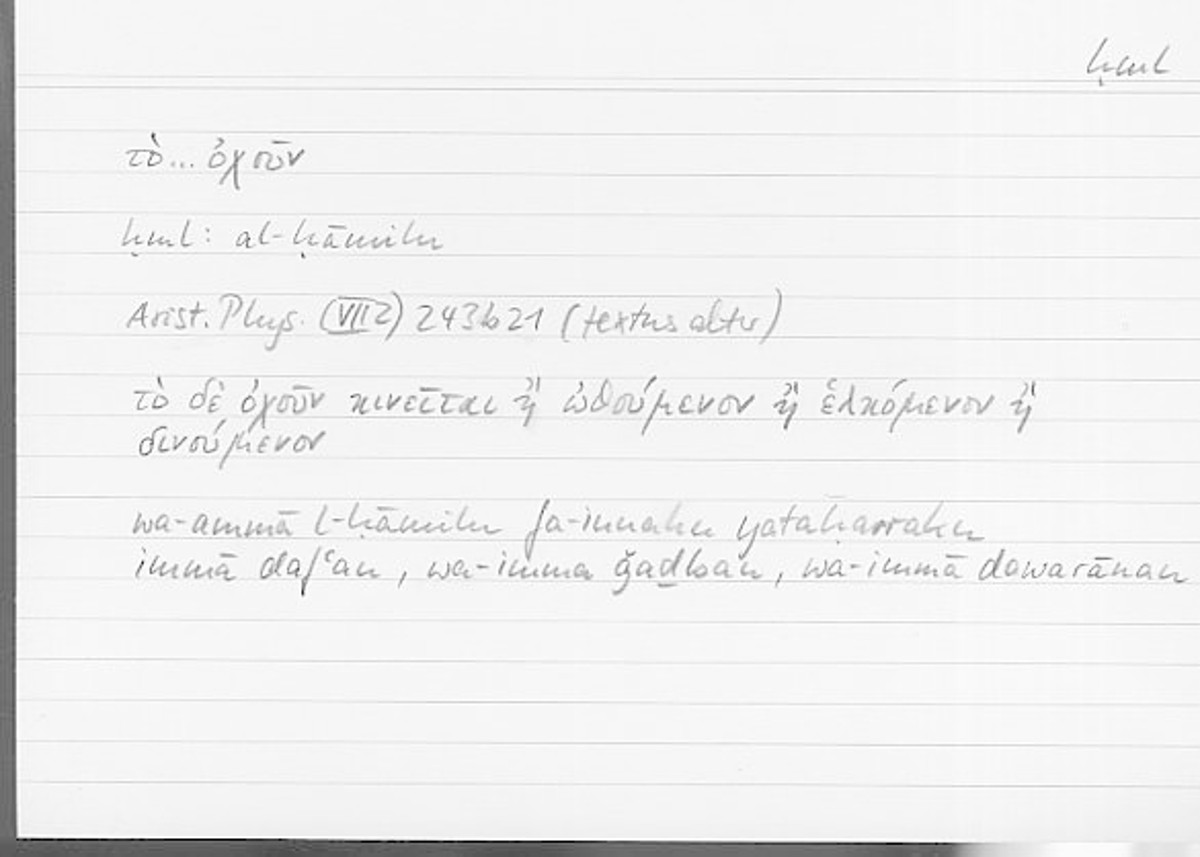 ḥml
τὸ... ὀχοῦν
ḥml: al-ḥāmilu
Arist. Phys. (VII 2) 243b21 (textus alter)
τὸ δὲ ὀχοῦν κινεῖται ἢ ὠθούμενον ἢ ἑλκόμενον ἢ
δινούμενον
wa-ammā l-ḥāmilu fa-innahu yataḥarraku
immā dafʿan, wa-imma ǧaḏban, wa-immā dawarānan